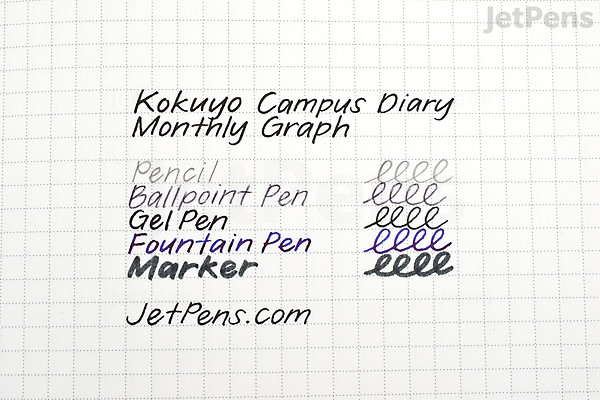 JetPens
Kokuyo Campus Diary
Monthly Graph
Pencil
Ballpoint Pen
Gel Pen
Fountain Pen
Marker
JetPens.com